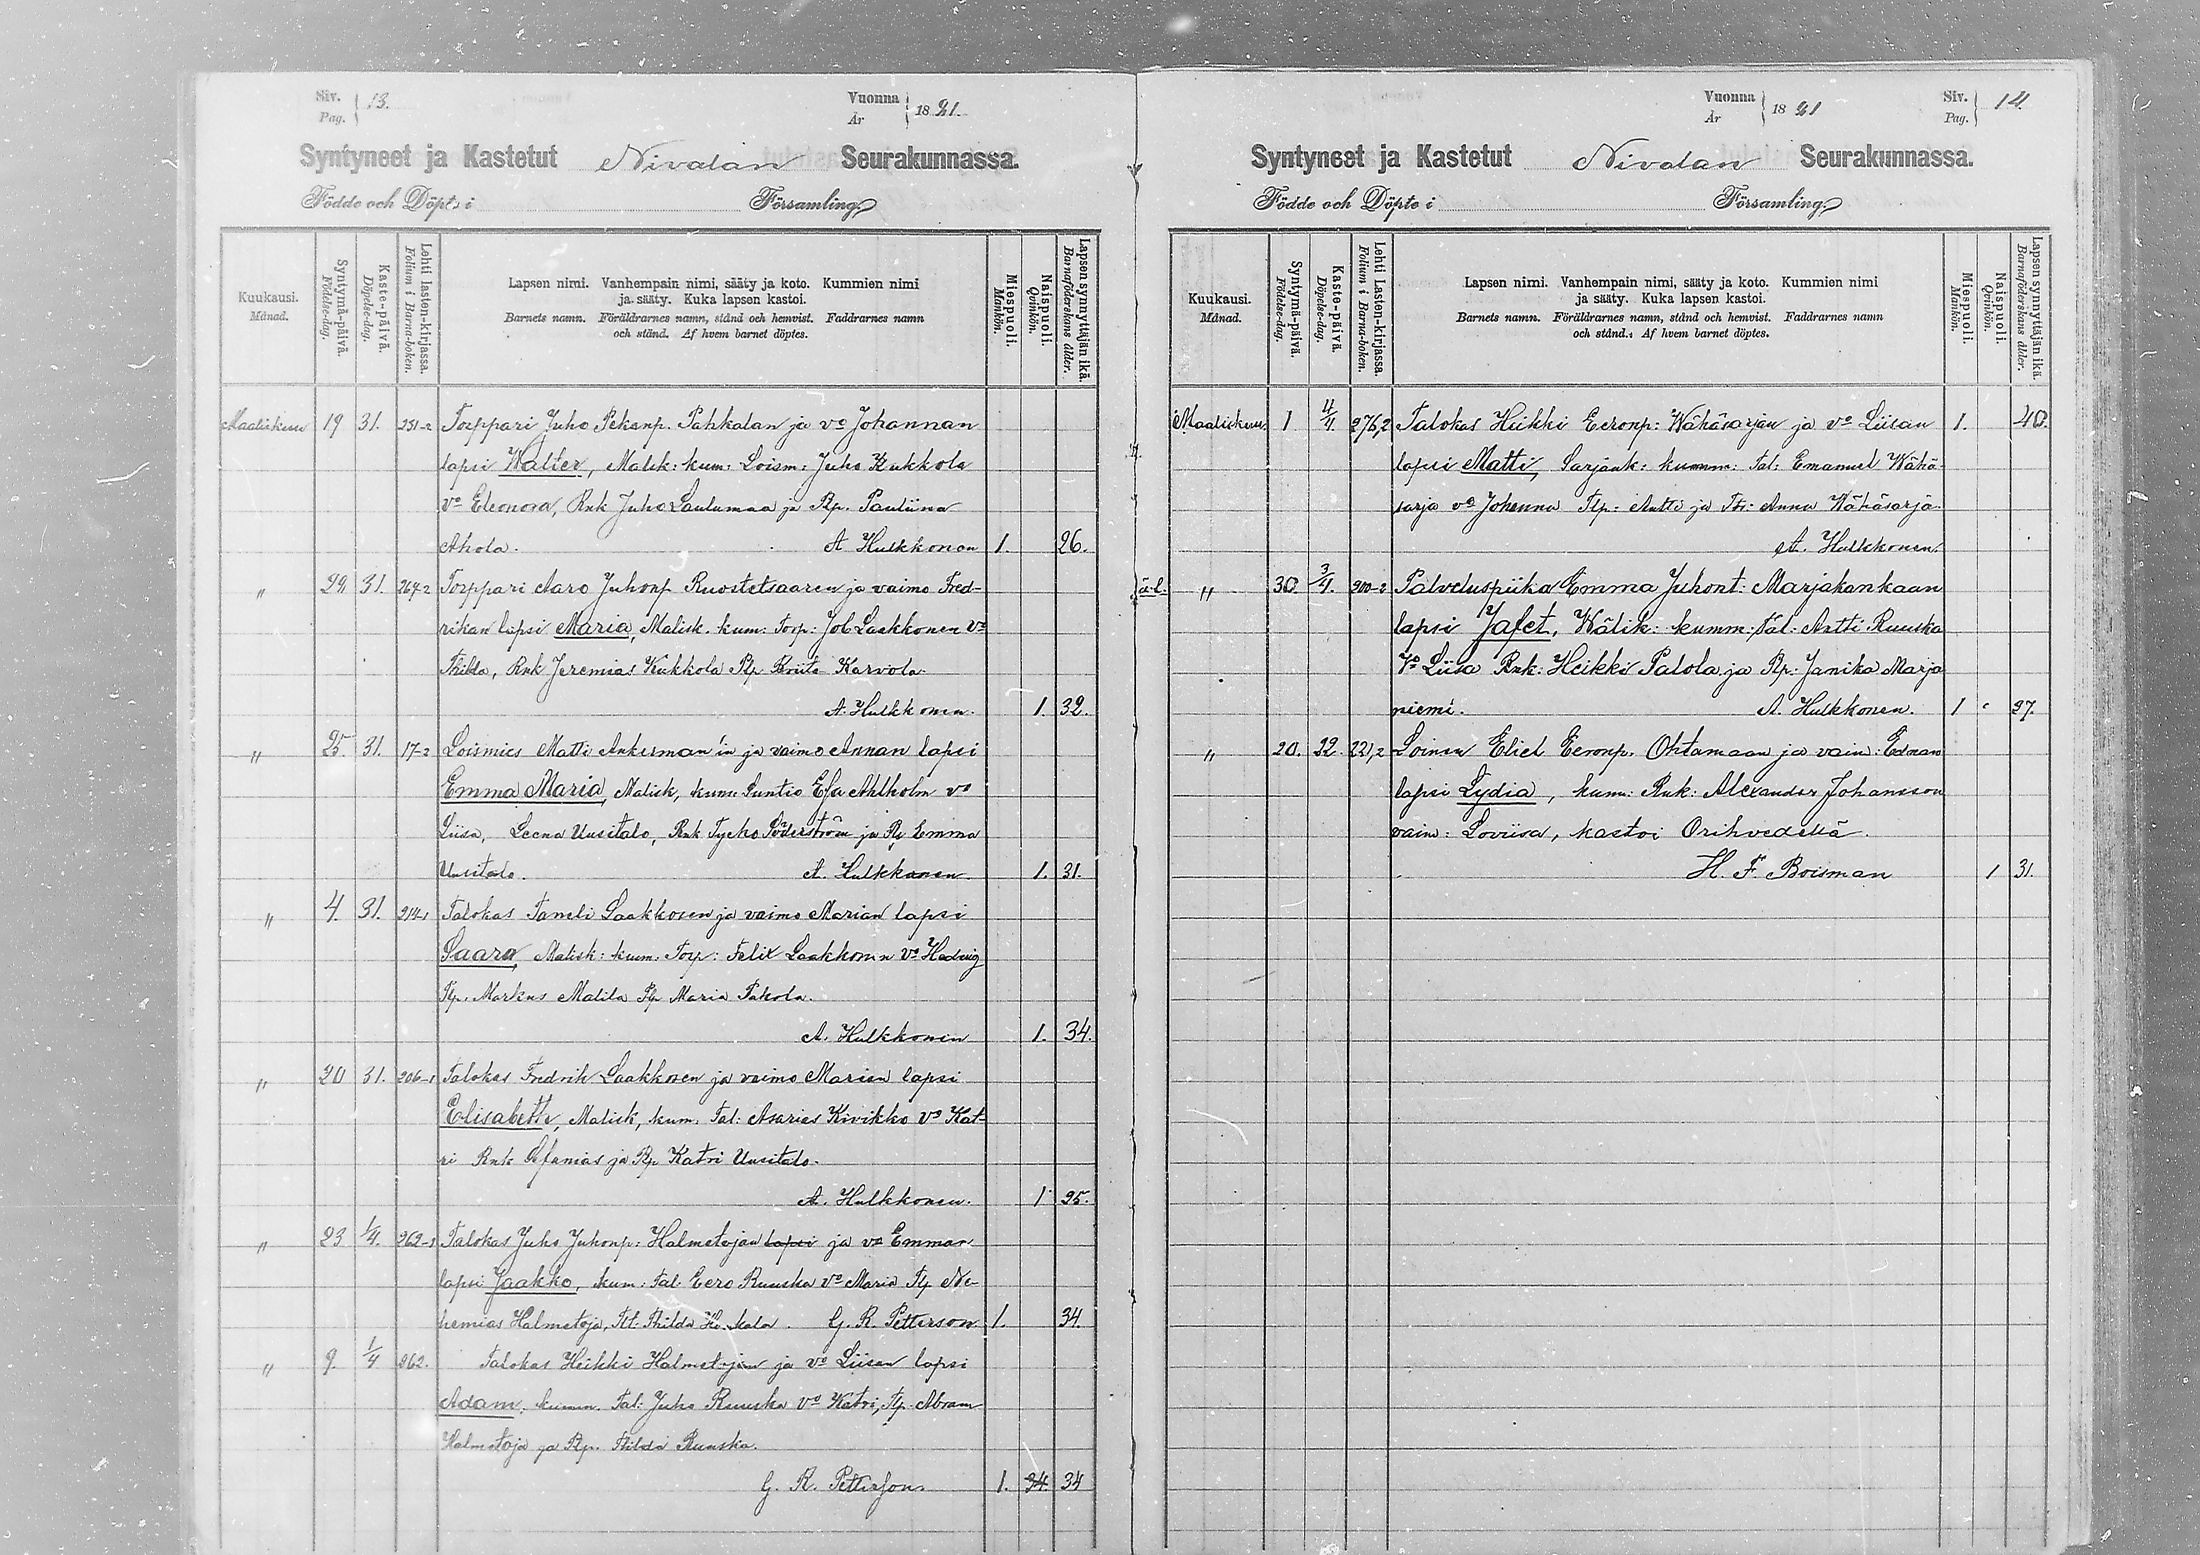 Siv. Pag. 13. Vuonna År 1891.
Syntyneet ja Kastetut Nivalan Seurakunnassa.
Födde och Döpte i Församling.
Kuukausi. Månad.
Syntymä-päivä. Födelse-dag.
Kaste-päivä. Döpelse-dag.
Lehti lasten-kirjassa. Folium i Barna-boken.
Lapsen nimi. Vanhempain nimi, sääty ja koto. Kummien nimi
ja sääty. Kuka lapsen kastoi.
Barnets namn. Föräldrarnes namn, stånd och hemvist. Faddrarnes namn
och stånd. Af hvem barnet döptes.
Miespuoli. Mankön.
Naispuoli. Qvinkön.
Lapsen synnyttäjän ikä. Barnaföderskans ålder.
Maaliskuu 19 31. 251-2 Torppari Juho Pekanp. Pahkalan ja vo Johannan
lapsi Walter, Malisk: kum: Loism: Juho Kukkola
vo Eleonora, Rnk Juho Laulumaa ja Pp. Pauliina
Ahola. A Hulkkonen 1. 26.
„ 29 31. 267-2 Torppari Aaro Juhonp Ruostetsaaren ja vaimo Fred-
rikan lapsi Maria, Malisk. kum: Torp: Job Laakkonen vo
Thilda, Rnk Jeremias Kukkola Pp Briita Karvola.
A. Hulkkonen. 1. 32.
„ 25 31. 17-2 Loismies Matti Ankerman'in ja vaimo Annan lapsi
Emma Maria, Malisk, kum: Suntio Esa Ahlholm vo
Liisa, Leena Uusitalo, Rnk Tycho Söderström ja Pp Emma
Uusitalo. A. Hulkkonen. 1. 31.
„ 4. 31. 214-1 Talokas Taneli Laakkosen ja vaimo Marian lapsi
Saara, Malisk: kum: Torp: Felix Laakkonen vo Hedvig
Pp. Markus Malila Pp Maria Pakola.
A. Hulkkonen 1. 34.
„ 20 31. 206-1 Talokas Fredrik Laakkosen ja vaimo Marian lapsi
Elisabetti, Malisk, kum. Tal: Asarias Kivikko vo Kat-
ri Rnk Sefanias ja Pp Katri Uusitalo.
A. Hulkkonen. 1 25.
„ 23 1/4. 262-3 Talokas Juho Juhonp: Halmetojan lapsi ja vo Emman
lapsi Jaakko, kum: Tal. Eero Ruuska vo Maria Tp Ne-
hemias Halmetoja, Tt: Thilda G. R. Petterson 1. 34.
„ 9. 1/4 262. Talokas Heikki Halmetojan ja vo Liisan lapsi
Adam, kumm. Tal: Juho Ruuska vo Katri, Tp. Abram
Halmetoja ja Pp. Thilda Ruuska.
G. R. Petterson. 1. 34 34
Vuonna År 1891 Siv. Pag. 14.
Syntyneet ja Kastetut Nivalan Seurakunnassa.
Födde och Döpte i Församling.
Kuukausi. Månad.
Syntymä-päivä. Födelse-dag.
Kaste-päivä. Döpelse-dag.
Lehti Lasten-kirjassa. Folium i Barna-boken.
Lapsen nimi. Vanhempain nimi, sääty ja koto. Kummien nimi
ja sääty. Kuka lapsen kastoi.
Barnets namn. Föräldrarnes namn, stånd och hemvist. Faddrarnes namn
och stånd. Af hvem barnet döptes.
Miespuoli. Mankön.
Naispuoli. Qvinkön.
Lapsen synnyttäjän ikä. Barnaföderskans ålder.
Maaliskuu 1 4/4. 276,2 Talokas Heikki Eeronp: Wähäsarjan ja vo Liisan 1. 40.
lapsi Matti, Sarjank: kumm: Tal: Emanuel Wähä-
sarja vo Johanna Tlp: Antti ja Ttr: Anna Wähäsarja.
A. Hulkkonen.
ä-l. „ 30. 3/4. 200-2 Palveluspiika Emma Juhont: Marjakankaan
lapsi Jafet, Wälik: kumm: Tal: Antti Ruuska
Vo Liisa Rnk: Heikki Palola ja Pp: Janika Marja
niemi. A. Hulkkonen. 1 27.
„ 20. 22. 221,2 Loinen Eliel Eeronp. Ohtamaan ja vaim: Ednan
lapsi Lydia, kum: Rnk: Alexander Johansson
vaim: Loviisa, kastoi Orihvedellä.
H. F. Boisman 1 31.